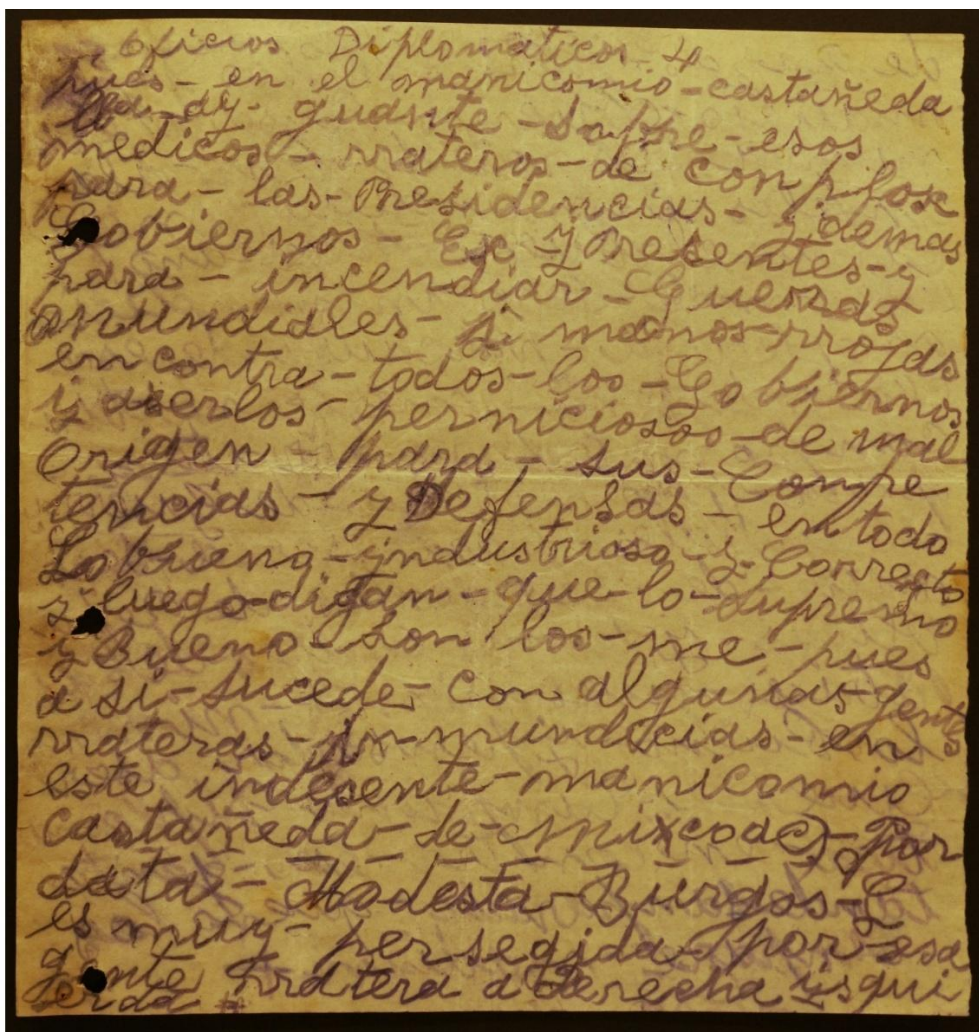 Oficios Diplomaticos 4
pues - en el manicomio - castañeda
guante - Sopre - esos
medicos - rrateros - de Complose
para - las - Presidencias - y demas
Gobiernos - Ex y Presentes - y
para - incendiar - Guerras
mundiales - si manos - rrojas
en contra - todos - los - Gobiernos
y aserlos - perniciosos - de mal
Origen - para - sus - Compe
tencias - y Defensas - en todo
Lo bueno - yndustrioso - y Correcto
y luego - digan - que - lo - Supremo
y Bueno - son los - me - pues
a si - sucede - con algunas - gentes
rrateras - ynmundicias - en
este indesente - manicomio
Castañeda - de - Mixcoac) - Por
data - Modesta - Burgos - G
es muy - persegida - por - esa
gente rratera a Derecha ysqui
erda #